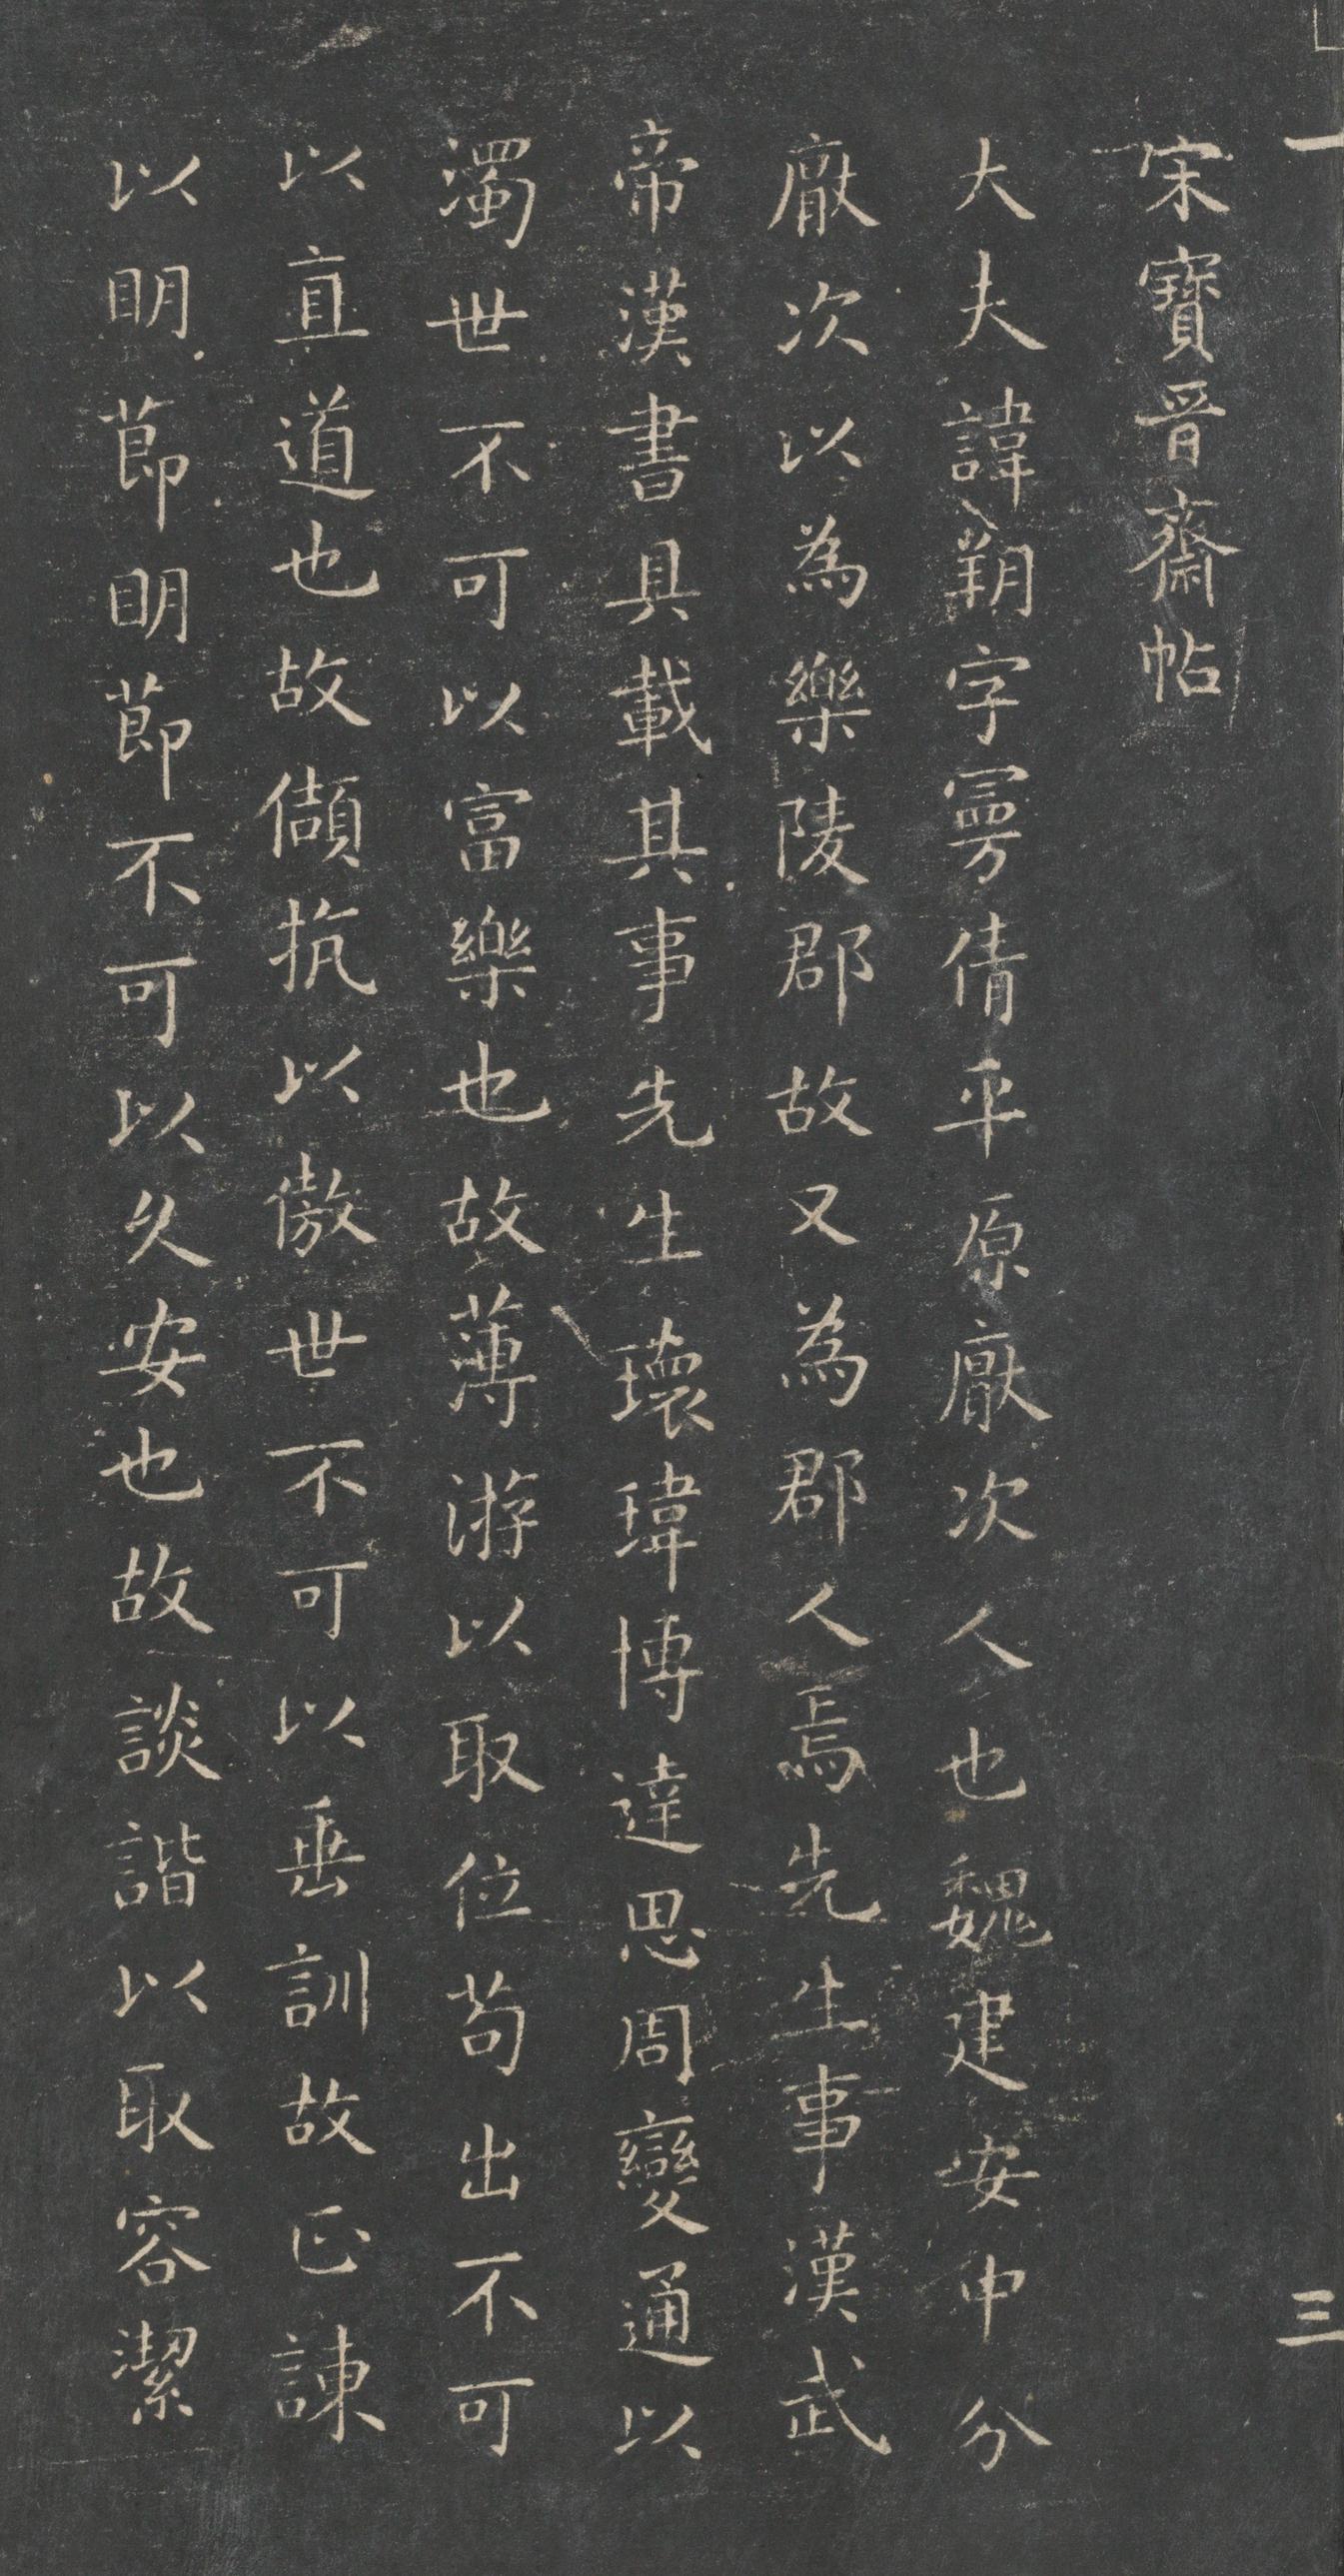 宋寶晉齋帖
大夫諱朔字曼倩平原厭次人也魏建安中分
厭次以為樂陵郡故又為郡人焉先生事漢武
帝漢書具載其事先生瓌瑋博達思周變通以
濁世不可以富樂也故薄游以取位苟出不可
以直道也故傾抗以傲世不可以垂訓故正諫
以明節明節不可以久安也故談諧以取容潔
一
三